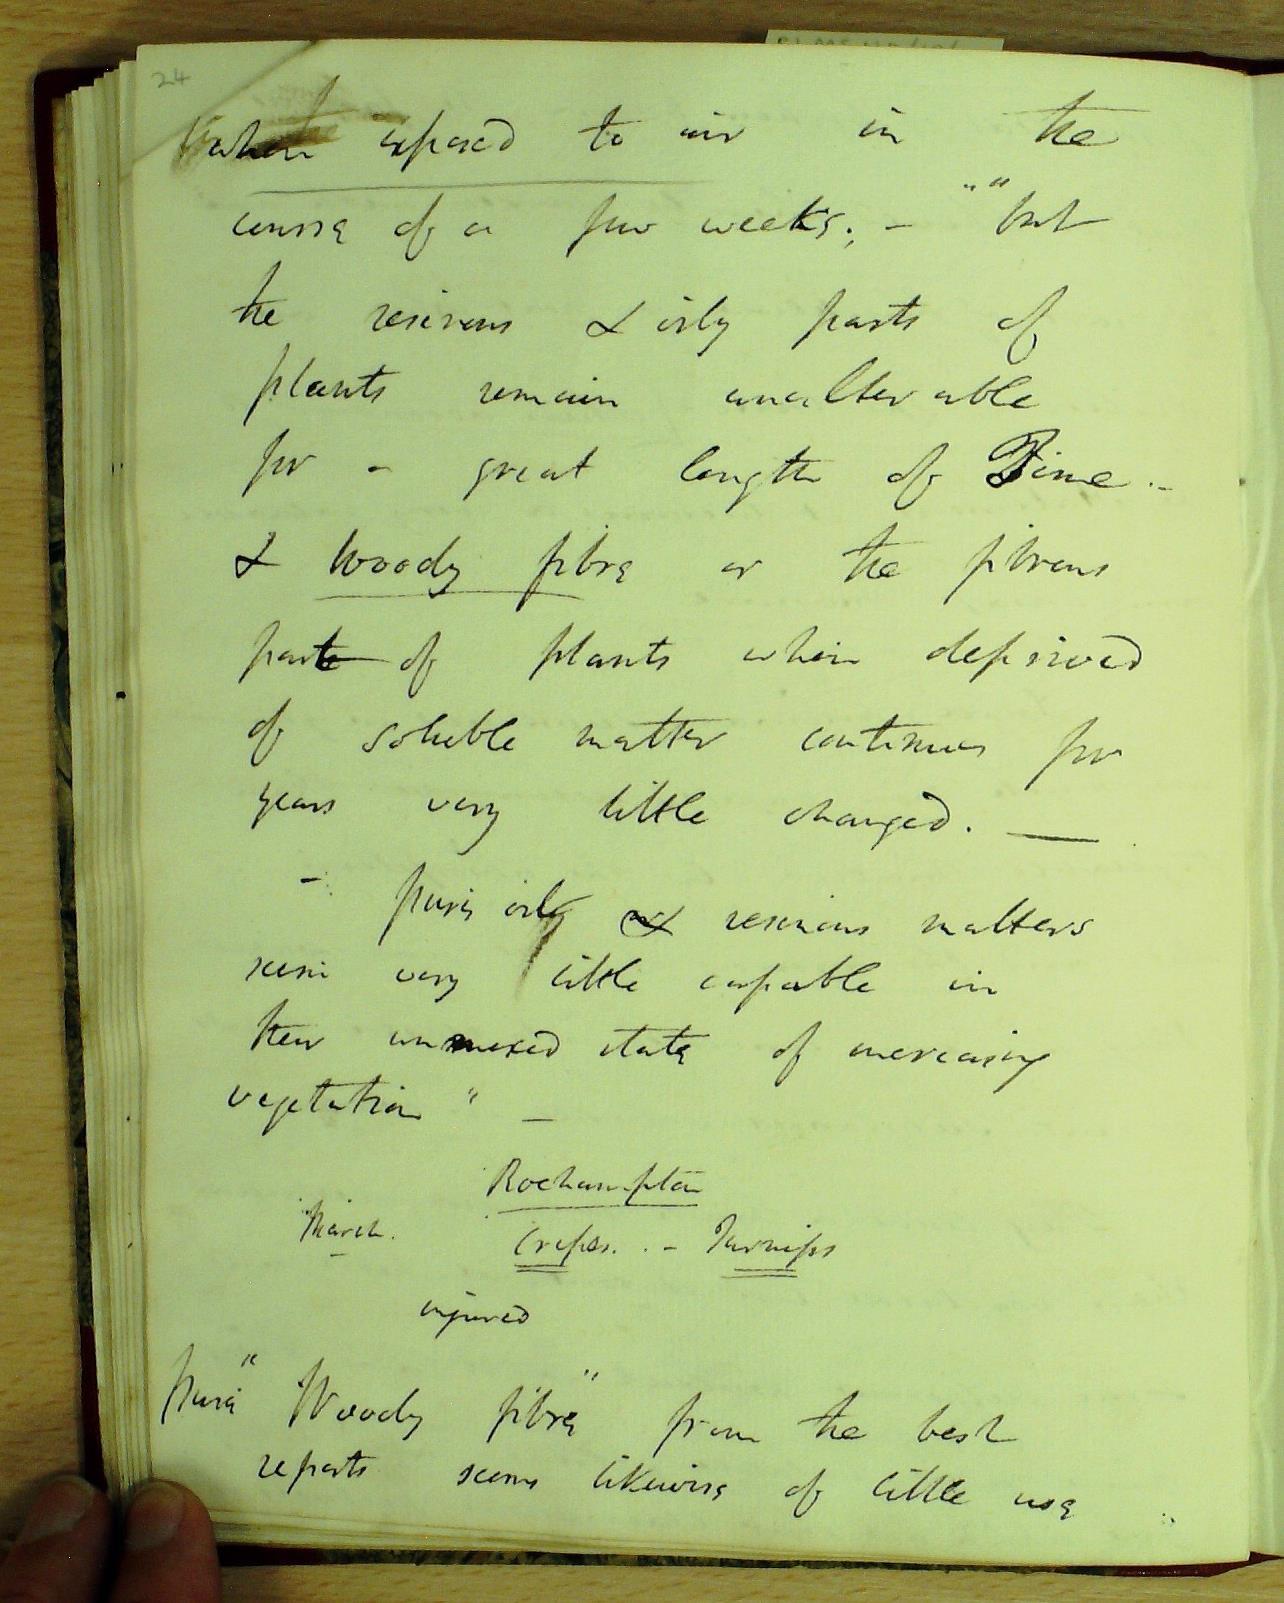 24
when exposed to air in the
course of a few weeks; - "" but
the resinous & oily parts of
plants remain unalterable
for a great length of Time -
& Woody fibre or the fibrous
part of plants when deprived
of soluble matter continues for
years very little changed. —
- pure oily & resinous matters
seem very little capable in
their unmixed state of increasing
vegetation" -
Roehampton
March. Crops. - Turnips
injured
pure "Woody fibre" from the best
reports seems likewise of little use